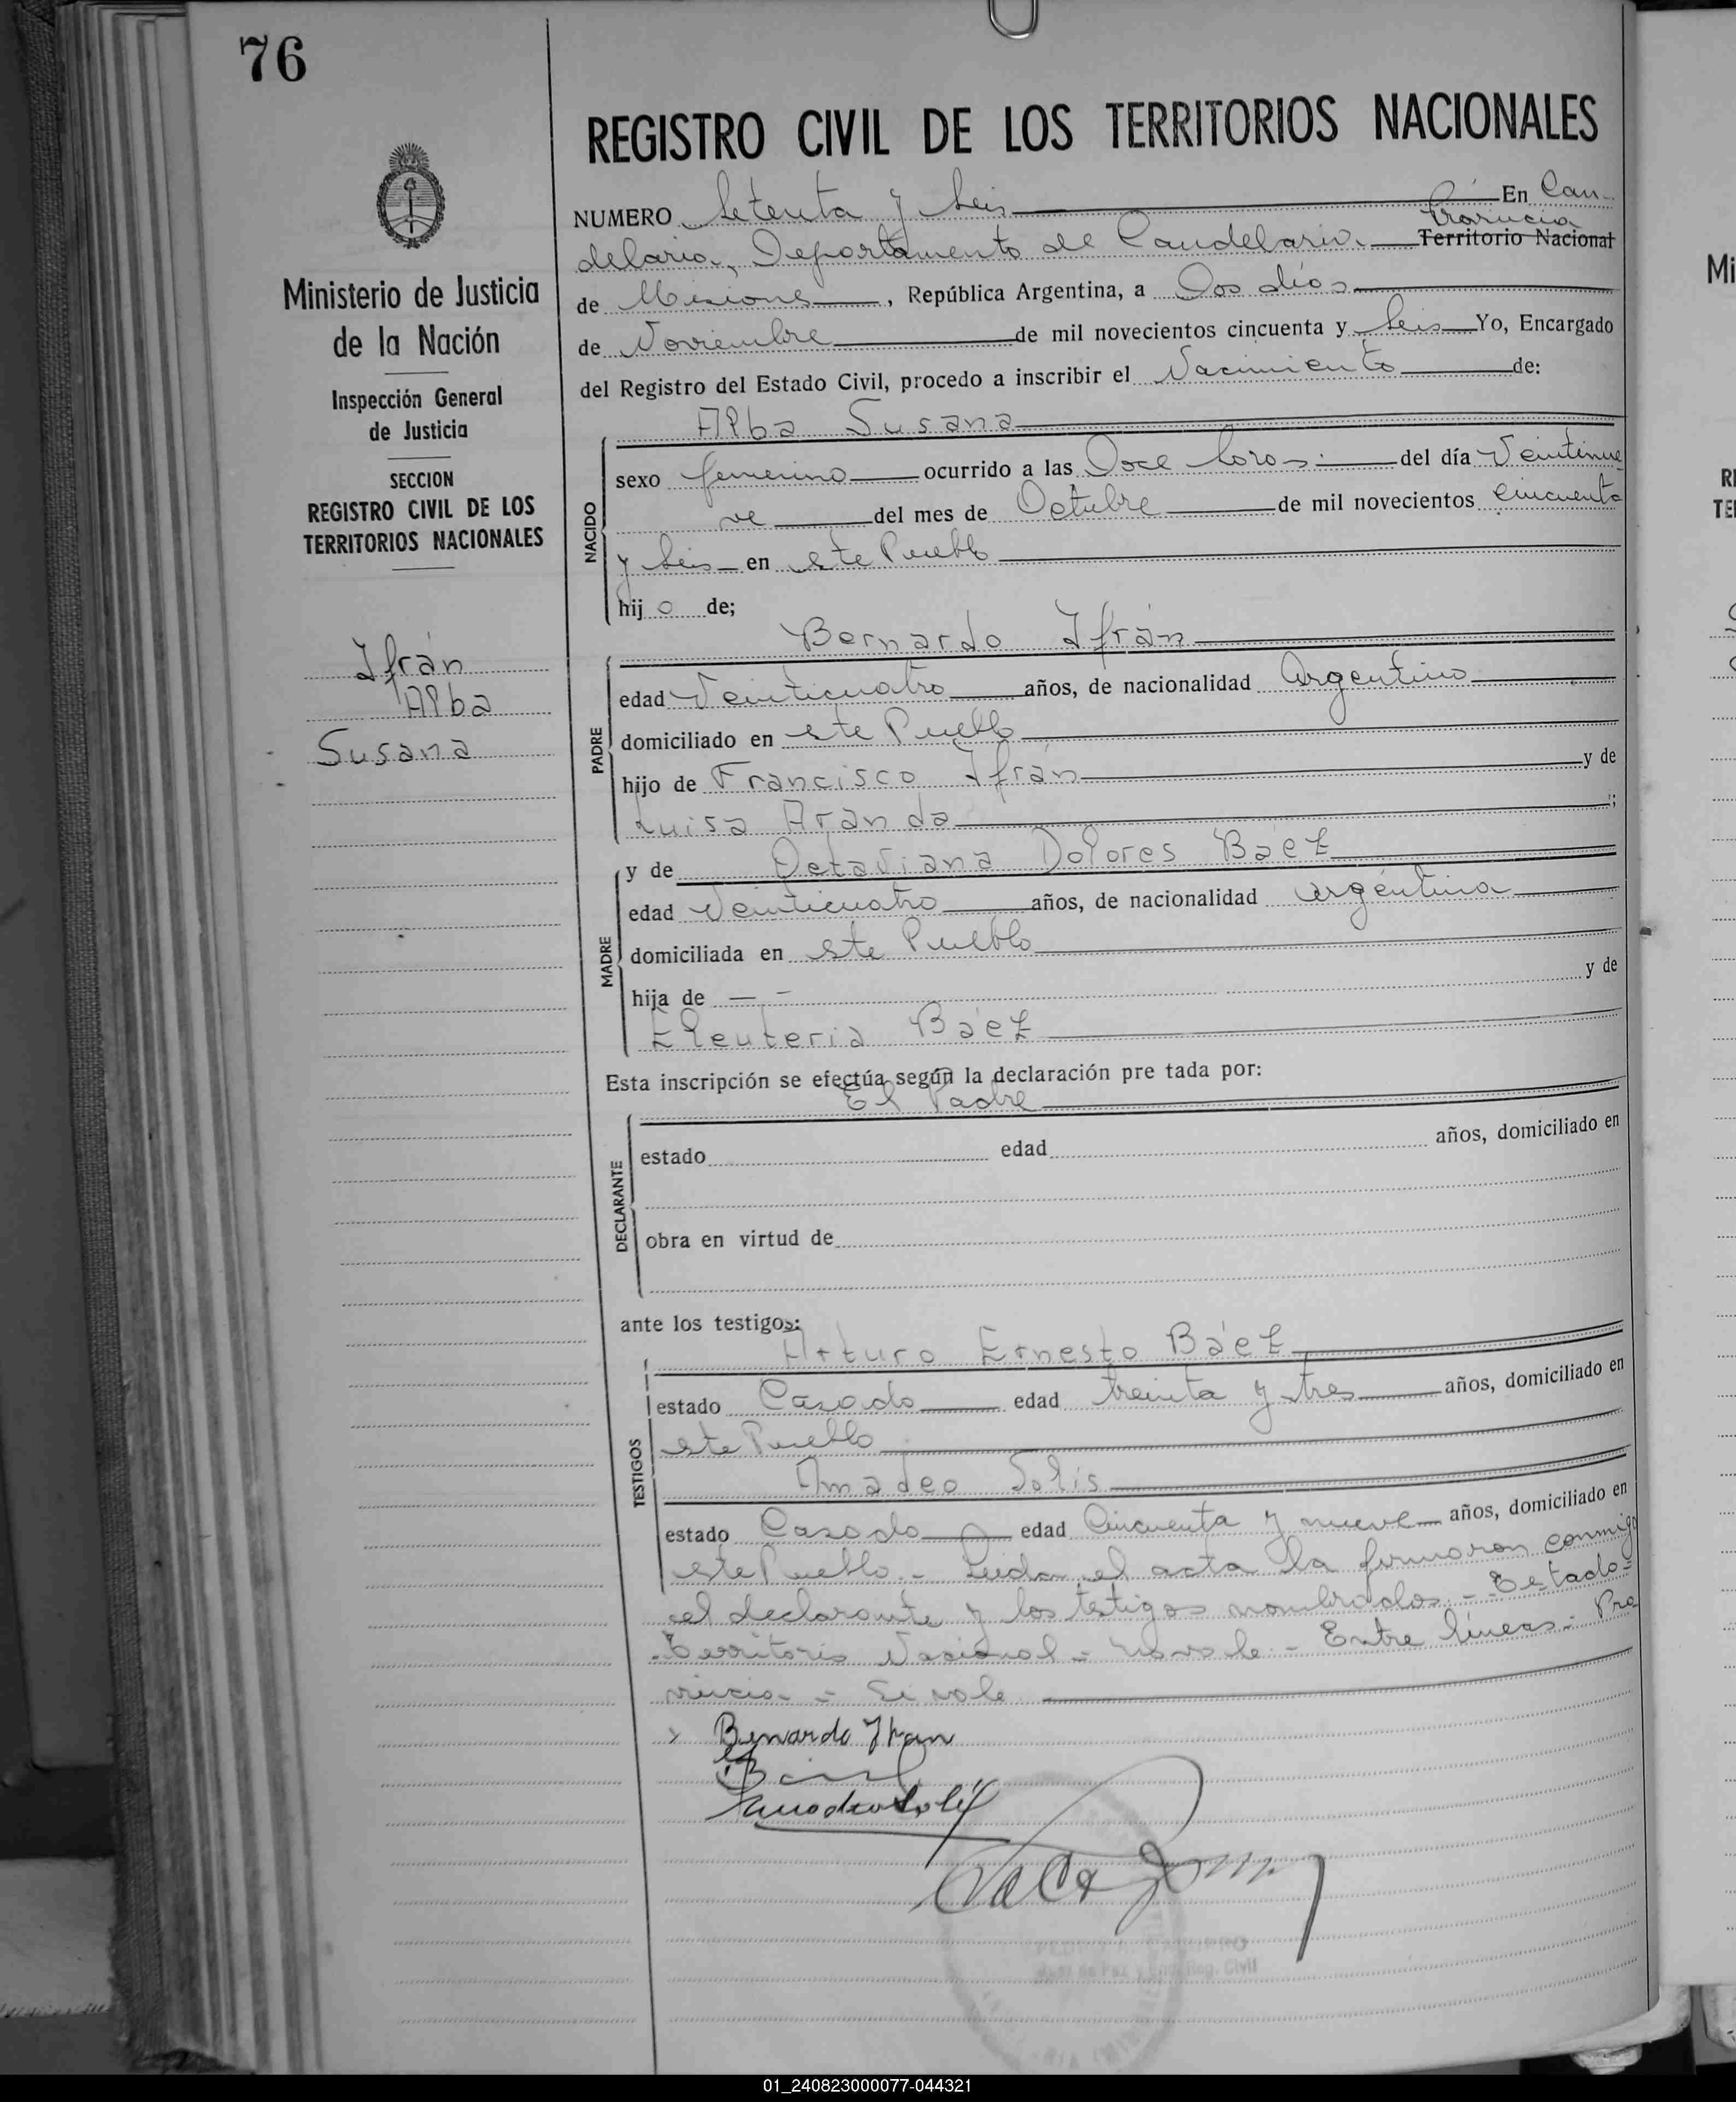 76
REGISTRO CIVIL DE LOS TERRITORIOS NACIONALES
Ministerio de Justicia
de la Nación
Inspección General
de Justicia
SECCION
REGISTRO CIVIL DE LOS
TERRITORIOS NACIONALES
Ifrán
Alba
Susana
NUMERO Setenta y Seis En Can-
Provincia
delaria, Departamento de Candelaria Territorio Nacional
de Misiones, República Argentina, a Dos días
de Noviembre de mil novecientos cincuenta y Seis Yo, Encargado
del Registro del Estado Civil, procedo a inscribir el Nacimiento de:
Alba Susana
NACIDO
sexo femenino ocurrido a las Doce horas del día Veintinue
ve del mes de Octubre de mil novecientos cincuenta
y Seis en este Pueblo
hij a de;
Bernardo Ifrán
PADRE
edad Veinticuatro años, de nacionalidad Argentino
domiciliado en este Pueblo
hijo de Francisco Ifrán y de
Luisa Aranda ;
y de Octaviana Dolores Báez
MADRE
edad Veinticuatro años, de nacionalidad argentina
domiciliada en este Pueblo
hija de — – y de
Eleuteria Báez
Esta inscripción se efectúa según la declaración pre tada por:
El Padre
DECLARANTE
estado edad años, domiciliado en
obra en virtud de
ante los testigos:
Arturo Ernesto Báez
TESTIGOS
estado Casado edad treinta y tres años, domiciliado en
este Pueblo
Amadeo Solis
estado Casado edad Cincuenta y nueve años, domiciliado en
este Pueblo.- Leida el acta la firmaron conmigo
el declarante y los testigos nombrados.- Testado=
Territorio Nacional = no vale - Entre líneas: Pro
vincia = Si vale
x Bernardo Ifran
Amadeo Solis
Reg. Civil
01_240823000077-044321
Mi